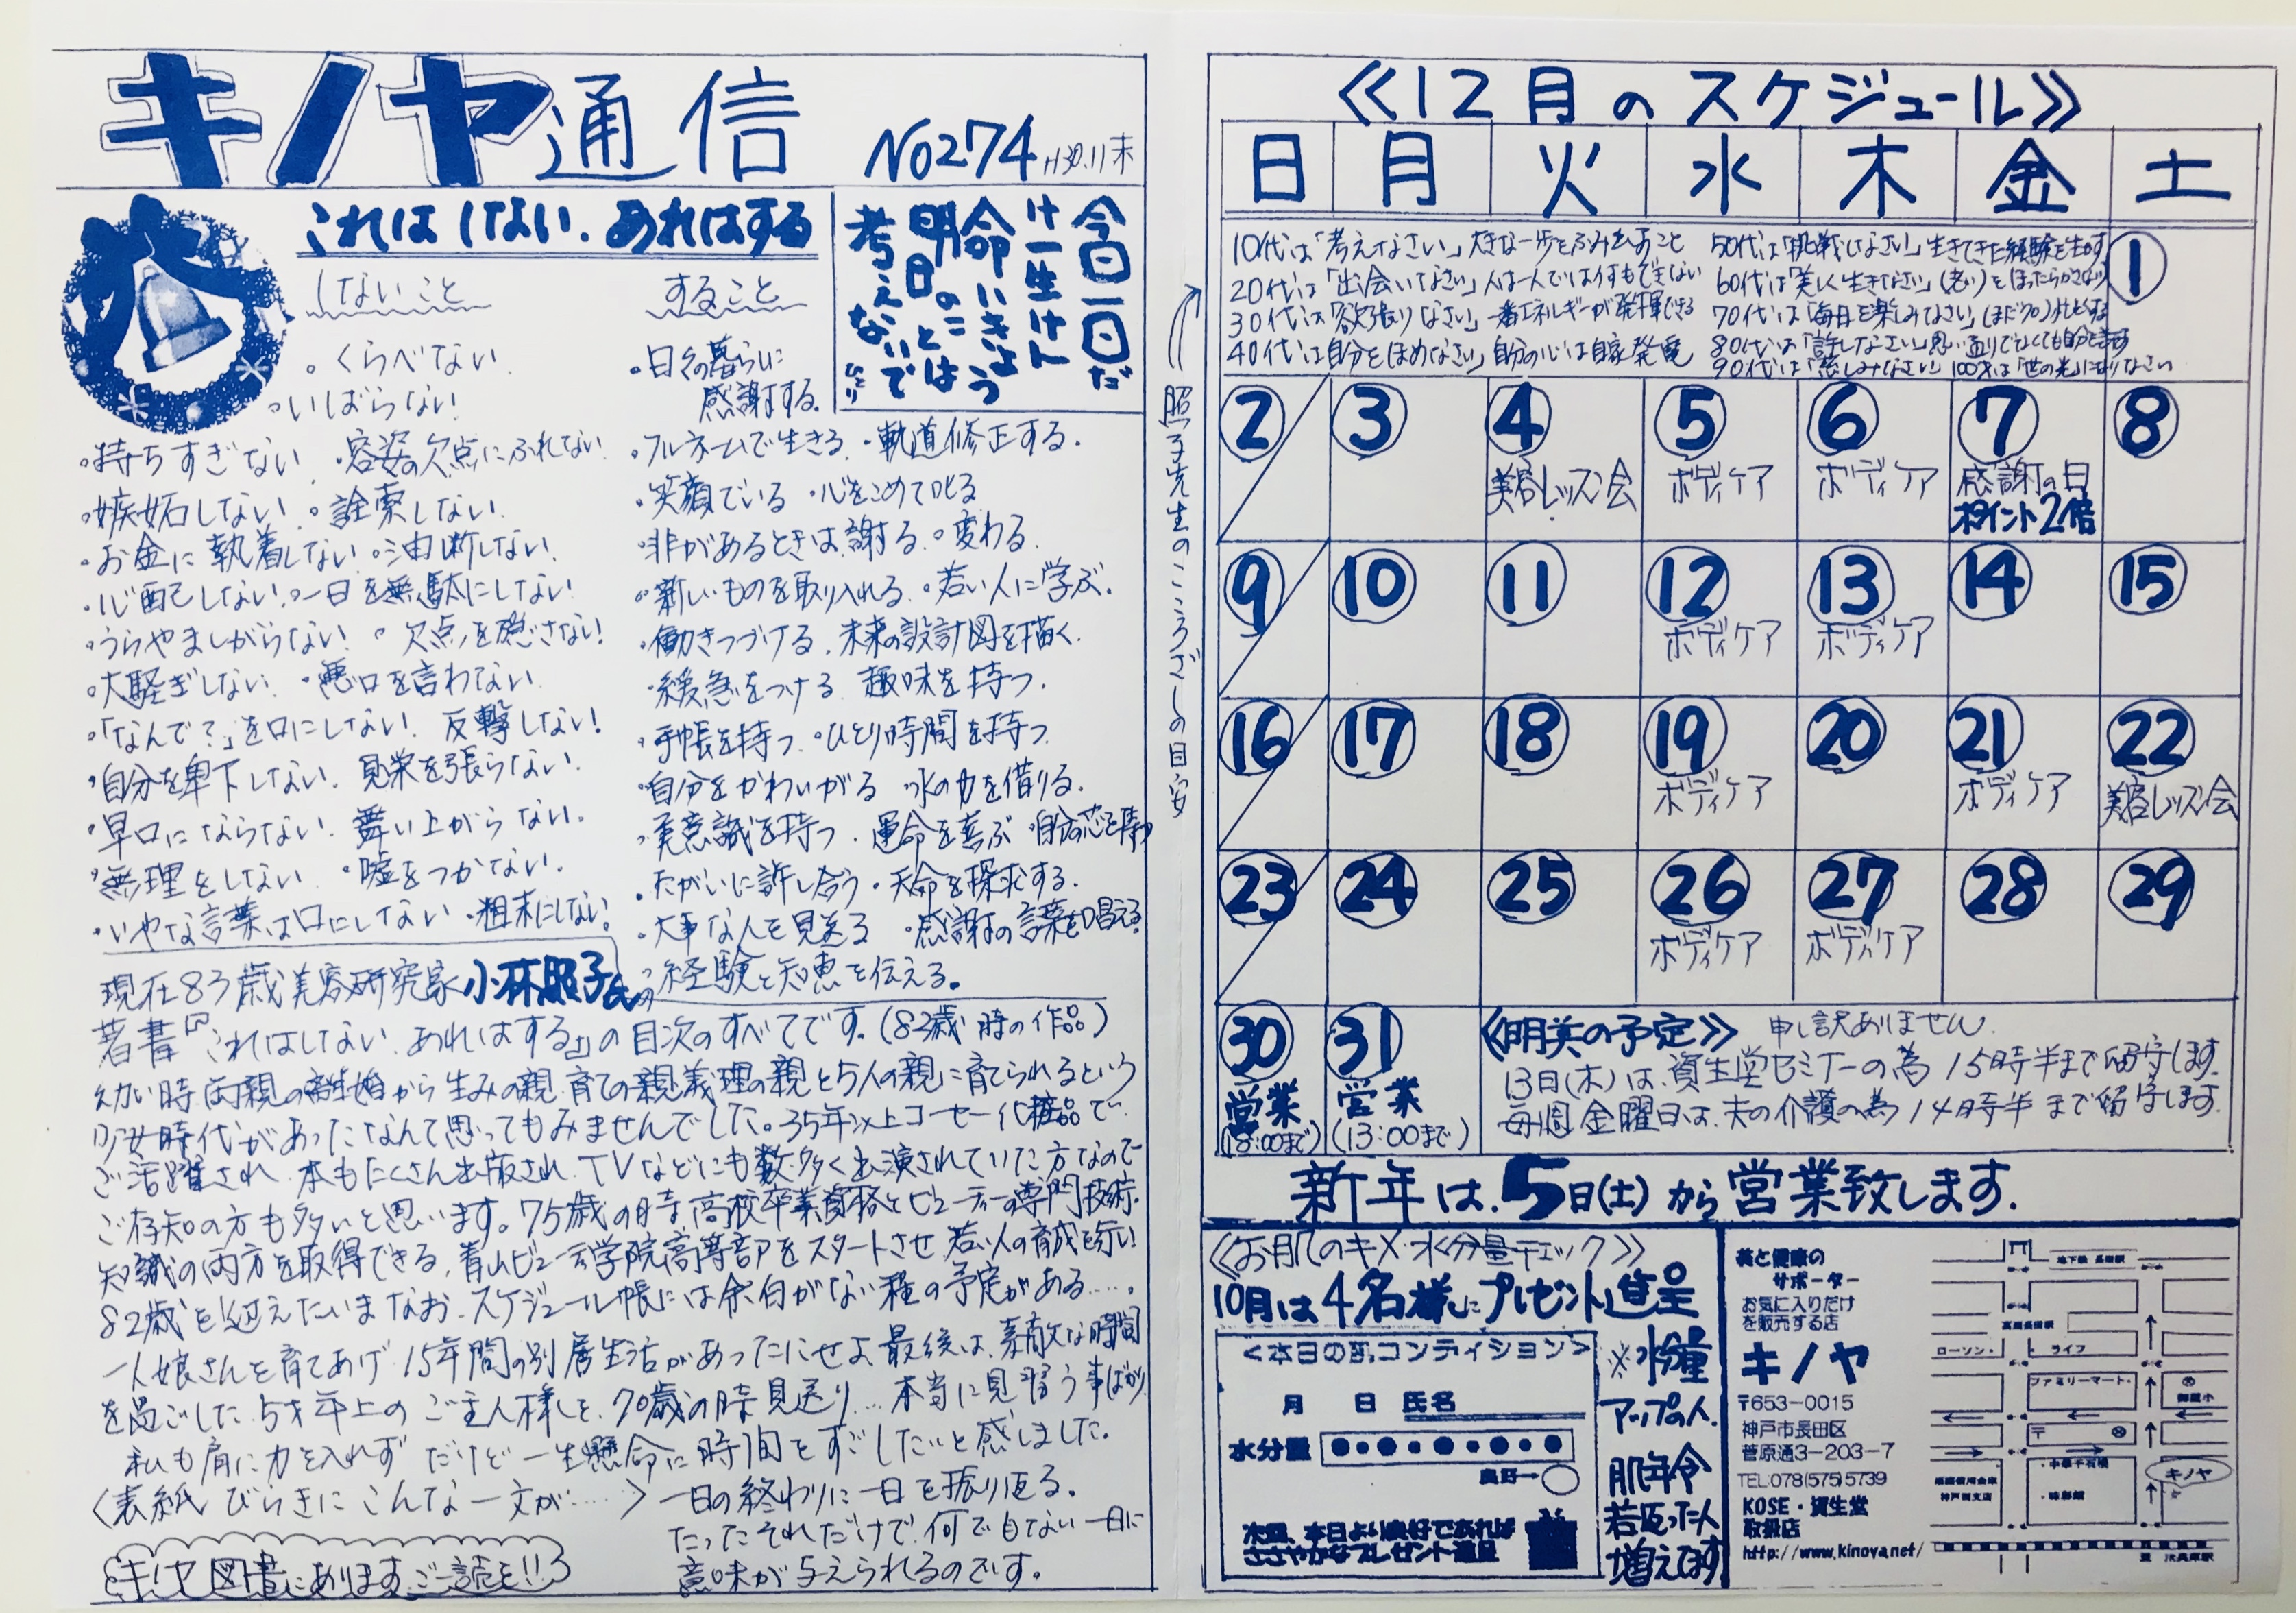 キノヤ通信 No274 H30.11末
これはしない、あれはする
しないこと
。くらべない
。いばらない!
・持ちすぎない ・容姿の欠点にふれない
・嫉妬しない 。詮索しない
・お金に執着しない 。油断しない
・心配しない 。一日を無駄にしない
・うらやましがらない! 。欠点を隠さない!
・大騒ぎしない ・悪口を言わない
・「なんで?」を口にしない! 反撃しない!
・自分を卑下しない 見栄を張らない
・早口にならない 舞い上がらない
・無理をしない ・嘘をつかない
・いやな言葉は口にしない ・粗末にしない
すること
・日々の暮らしに
感謝する
・フルネームで生きる ・軌道修正する
・笑顔でいる ・心をこめて叱る
・非があるときは謝る 。変わる
・新しいものを取り入れる 。若い人に学ぶ
・働きつづける 未来の設計図を描く
・緩急をつける 趣味を持つ
・手帳を持つ 。ひとり時間を持つ
・自分をかわいがる 水の力を借りる
・美意識を持つ ・運命を喜ぶ ・自分の芯を持つ
・たがいに許し合う ・天命を探求する
・大事な人を見送る ・感謝の言葉を唱える
・経験と知恵を伝える。
今日一日だ
け一生けん
命いきよう
明日のことは
考えないで
ひとり
現在83歳美容研究家小林照子氏の
著書『これはしない、あれはする』の目次のすべてです。(82歳時の作品)
幼い時両親の離婚から生みの親、育ての親、義理の親と5人の親に育てられるという
少女時代があったなんて思ってもみませんでした。35年以上コーセー化粧品で
ご活躍され、本もたくさん出版され、TVなどにも数多く出演されていた方なので
ご存知の方も多いと思います。75歳の時高校卒業資格とビューティーの専門技術・
知識の両方を取得できる、青山ビューティ学院高等部をスタートさせ若い人の育成を
82歳を迎えたいまなお、スケジュール帳には余白がない程の予定がある‥‥。
一人娘さんを育てあげ 15年間の別居生活があったにせよ最後は、素敵な時間
を過ごした5才年上のご主人様を、70歳の時見送り…本当に見習う事ばかり
私も肩に力を入れず だけど一生懸命に時間をすごしたいと感じました。
〈表紙びらきにこんな一文が‥‥〉 一日の終わりに一日を振り返る。
たったそれだけで、何でもない一日に
意味が与えられるのです。
キノヤ図書にあります、ご一読を!!
照子先生のこころざしの目安
≪12月のスケジュール≫
日 月 火 水 木 金 土
10代は「考えなさい」大きな一歩をふみ出すこと
20代は「出会いなさい」人は一人では何もできない
30代は「欲張りなさい」一番エネルギーが発揮できる
40代は自分をほめなさい」自分の心は自家発電
50代は「挑戦しなさい」生きてきた経験を生かす
60代は「美しく生きなさい」(老い)をほったらかさない
70代は「毎日を楽しみなさい」(まだ70)
80代は「許しなさい」思い通りでなくても自分を許す
90代は「慈しみなさい」100才は「世の光」になりなさい
1
2 3 4 5 6 7 8
美容レッスン会 ボディケア ボディケア 感謝の日
ポイント2倍
9 10 11 12 13 14 15
ボディケア ボディケア
16 17 18 19 20 21 22
ボディケア ボディケア 美容レッスン会
23 24 25 26 27 28 29
ボディケア ボディケア
30 31
営業 営業
(18:00まで) (13:00まで)
≪明美の予定≫ 申し訳ありません
13日(木)は、資生堂セミナーの為 15時半まで留守します。
毎週金曜日は、夫の介護の為 14時半まで留守します。
新年は、5日(土)から営業致します。
≪お肌のキメ・水分量チェック≫
10月は4名様にプレゼント進呈
<本日の肌コンディション>
月 日 氏名
水分量
良好→
次回、本日より良好であれば
ささやかなプレゼント進呈
※水分量
アップの人、
肌年令
若返った人
増えてます
美と健康の
サポーター
お気に入りだけ
を販売する店
キノヤ
〒653-0015
神戸市長田区
菅原通3-203-7
TEL:078(575)5739
KOSE・資生堂
取扱店
http://www.kinoya.net/
地下鉄 長田駅
高速長田駅
ローソン・ ・ライフ
ファミリーマート・
〒
キノヤ
神戸西支店
JR兵庫駅